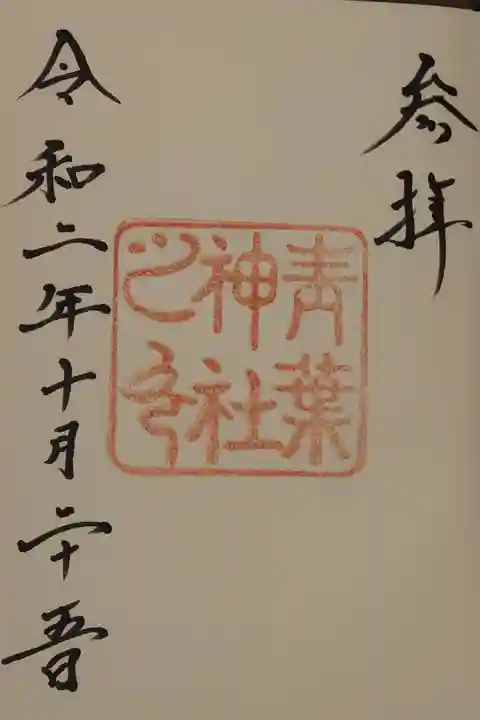 参拝
青葉
神社
之印
令和二年十月二十五日